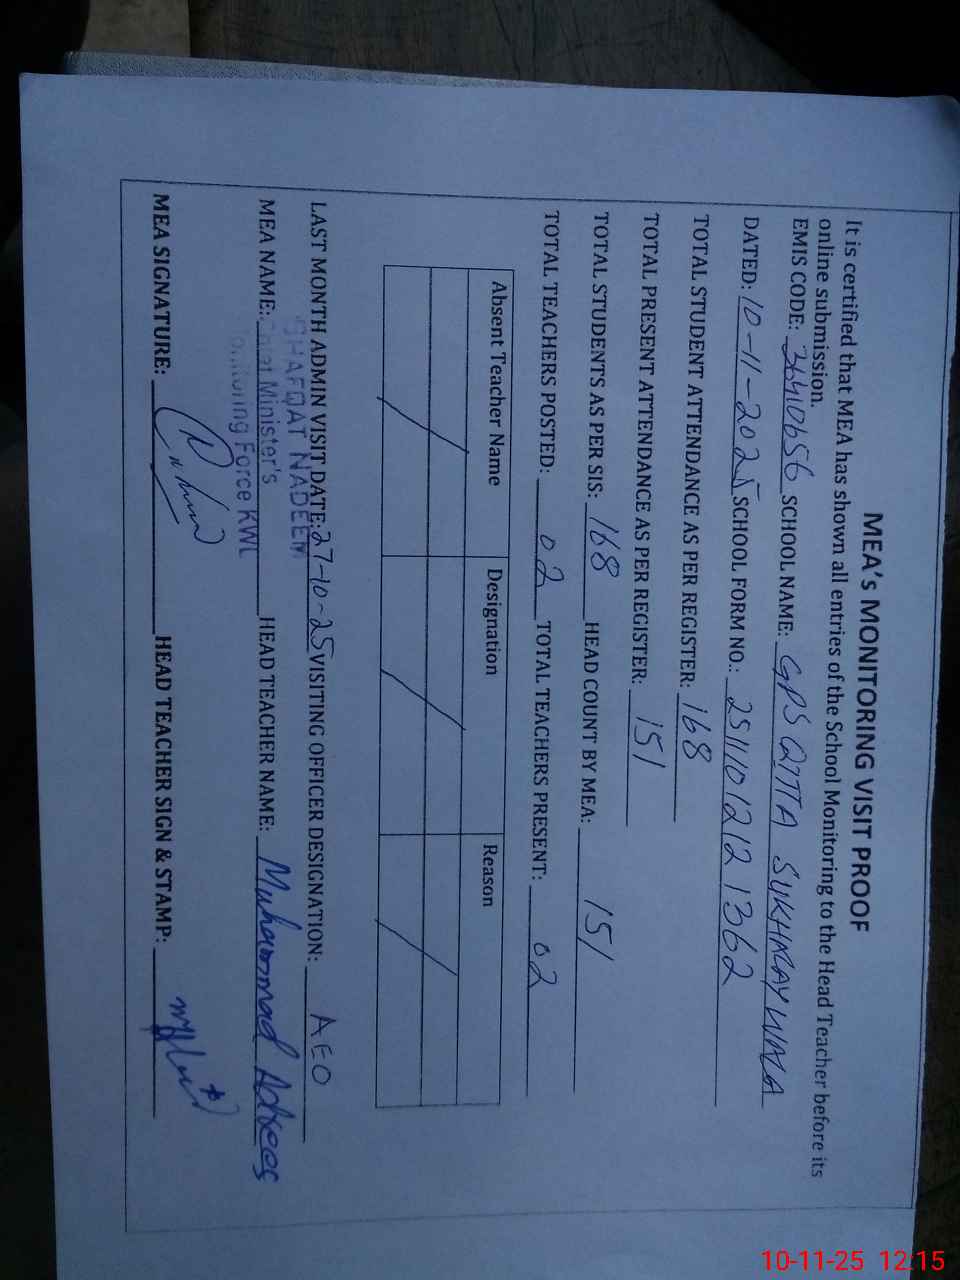 MEA's MONITORING VISIT PROOF
It is certified that MEA has shown all entries of the School Monitoring to the Head Teacher before its
online submission.
EMIS CODE: 36410656 SCHOOL NAME: GPS QITTA SUKHRAY WALA
DATED: 10-11-2025 SCHOOL FORM NO.: 251110121 21362
TOTAL STUDENT ATTENDANCE AS PER REGISTER: 168
TOTAL PRESENT ATTENDANCE AS PER REGISTER: 151
TOTAL STUDENTS AS PER SIS: 168 HEAD COUNT BY MEA: 151
TOTAL TEACHERS POSTED: 02 TOTAL TEACHERS PRESENT: 02
Absent Teacher Name Designation Reason
LAST MONTH ADMIN VISIT DATE: 27-10-25 VISITING OFFICER DESIGNATION: AEO
SHAFQAT NADEEM
MEA NAME: Chief Minister's HEAD TEACHER NAME: Muhammad Adrees
Monitoring Force KWL
MEA SIGNATURE: HEAD TEACHER SIGN & STAMP:
10-11-25 12:15